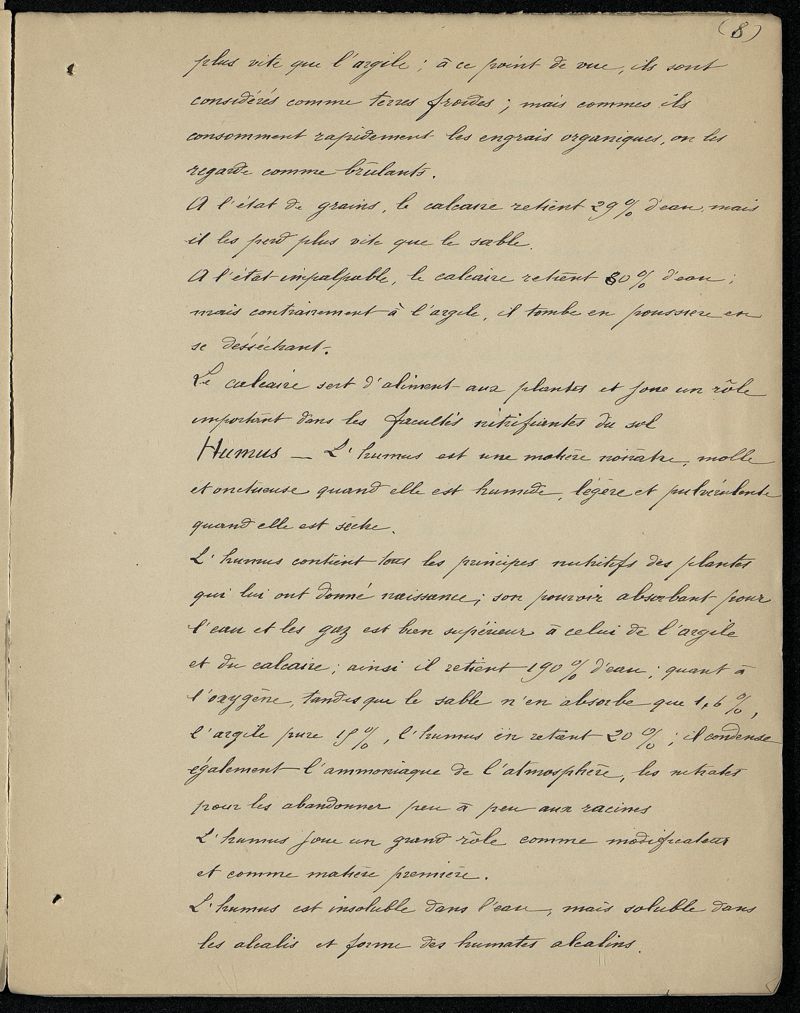 (8)
plus vite que l'argile ; à ce point de vue, ils sont
considérés comme terres froides ; mais commes ils
consomment rapidement les engrais organiques, on les
regarde comme brûlants.
A l'état de grains, le calcaire retient 29 % d'eau, mais
il les perd plus vite que le sable.
A l'état impalpable, le calcaire retient 80 % d'eau ;
mais contrairement à l'argile, il tombe en poussière en
se désséchant.
Le calcaire sert d'aliment aux plantes et joue un rôle
important dans les facultés nitrifiantes du sol
Humus — L'humus est une matière noirâtre, molle
et onctueuse quand elle est humide, légère et pulvérulente
quand elle est sèche.
L'humus contient tous les principes nutritifs des plantes
qui lui ont donné naissance ; son pouvoir absorbant pour
l'eau et les gaz est bien supérieur à celui de l'argile
et du calcaire ; ainsi il retient 190 % d'eau ; quant à
l'oxygène, tandis que le sable n'en absorbe que 1,6 %,
l'argile pure 15 %, l'humus en retient 20 % ; il condense
également l'ammoniaque de l'atmosphère, les nitrates
pour les abandonner peu à peu aux racines
L'humus joue un grand rôle comme modificateur
et comme matière première.
L'humus est insoluble dans l'eau, mais soluble dans
les alcalis et forme des humates alcalins.